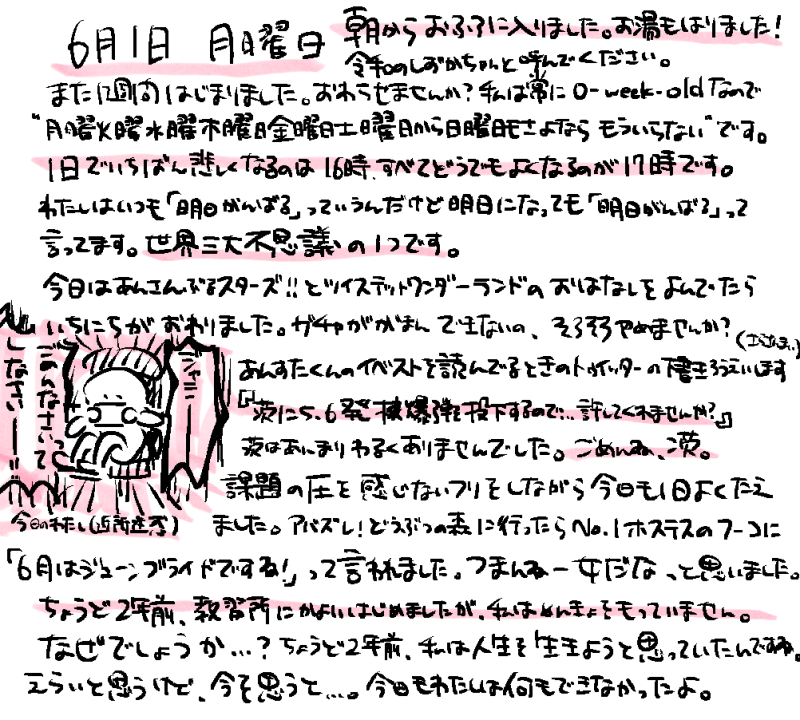 6月1日 月曜日
朝からおふろに入りました。お湯もはりました!
令和のしずかちゃんと呼んでください。
また1週間はじまりました。おわらせませんか?私は常に0-week-oldなので
"月曜火曜水曜木曜日金曜日土曜日から日曜日もさよなら もういらない"です。
1日でいちばん悲しくなるのは16時、すべてどうでもよくなるのが17時です。
わたしはいつも「明日がんばる」っていうんだけど明日になっても「明日がんばる」って
言ってます。世界三大不思議の1つです。
今日はあんさんぶるスターズ!!とツイステッドワンダーランドのおはなしをよんでたら
いちにちがおわりました。ガチャががまんできないの、そろそろやめませんか?
あんすたくんのイベストを読んでるときのトゥイッターの下書きろうえいします
『茨に5.6発核爆弾を投下するので…許してくれませんか?』
茨はあんまりわるくありませんでした。ごめんね、茨。
ごめんなさいって
しなさい
今日のわたし(近所迷惑)
課題の圧を感じないフリをしながら今日も1日よくたえ
ました。アバズレ!どうぶつの森に行ったらNo.1ホステスのフーコに
「6月はジューンブライドですね!」って言われました。つまんねー女だな っと思いました。
ちょうど2年前、教習所にかよいはじめましたが、私はめんきょをもっていません。
なぜでしょうか…?ちょうど2年前、私は人生を生きようと思っていたんですね。
えらいと思うけど、今を思うと…。今日もわたしは何もできなかったよ。